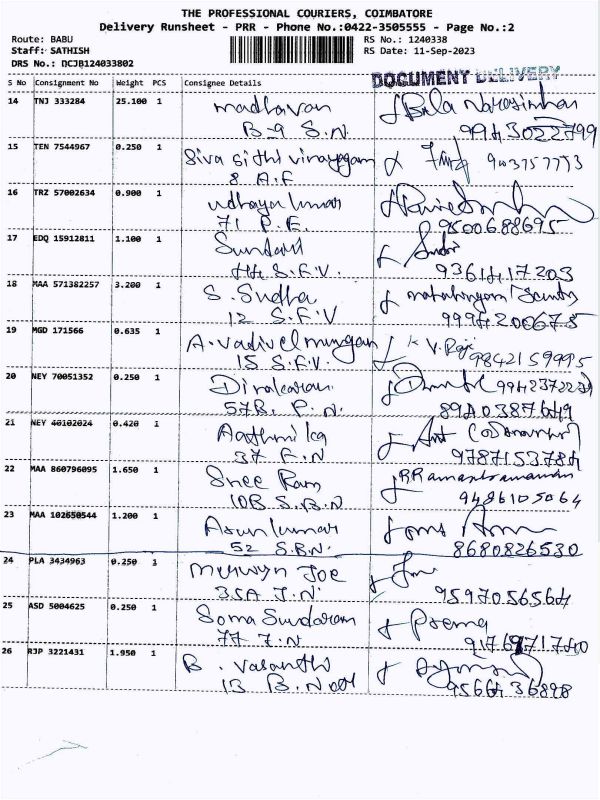 THE PROFESSIONAL COURIERS, COIMBATORE
Delivery Runsheet - PRR - Phone No.:0422-3505555 - Page No.:2
Route: BABU RS No.: 1240338
Staff: SATHISH RS Date: 11-Sep-2023
DRS No.: DCJB124033802
DOCUMENT DELIVERY
S No Consignment No Weight PCS Consignee Details
14 TNJ 333284 25.100 1 madhavan Bala Narasimhan
B-9 S.N. 9943022799
15 TEN 7544967 0.250 1 Siva sithi vinayagam
8 A.F
16 TRZ 57002634 0.900 1 udhaya kumar
71 P.F. 9500688695
17 EDQ 15912811 1.100 1
44 S.F.V. 9361417203
18 MAA 571382257 3.200 1 S. Sudha
12 S.F.V 9994200675
19 MGD 171566 0.635 1 A. vadivel murugan V. Raja
15 S.F.V. 9842159995
20 NEY 70051352 0.250 1 Dinakaran
57B. P.N. 8940387649
21 NEY 40102024 0.420 1 Aathmika
37 F.N 9787153784
22 MAA 860796095 1.650 1 Sree Ram
10B S.B.N 9486105064
23 MAA 102650544 1.200 1 Arun kumar
52 S.B.N. 8680826530
24 PLA 3434963 0.250 1 merwyn Joe
35A J.N. 9597056564
25 ASD 5004625 0.250 1 Soma Sundaram Prema
77 J.N 9176971740
26 RJP 3221431 1.950 1 B. Vasanthi
13 B. 9566436898